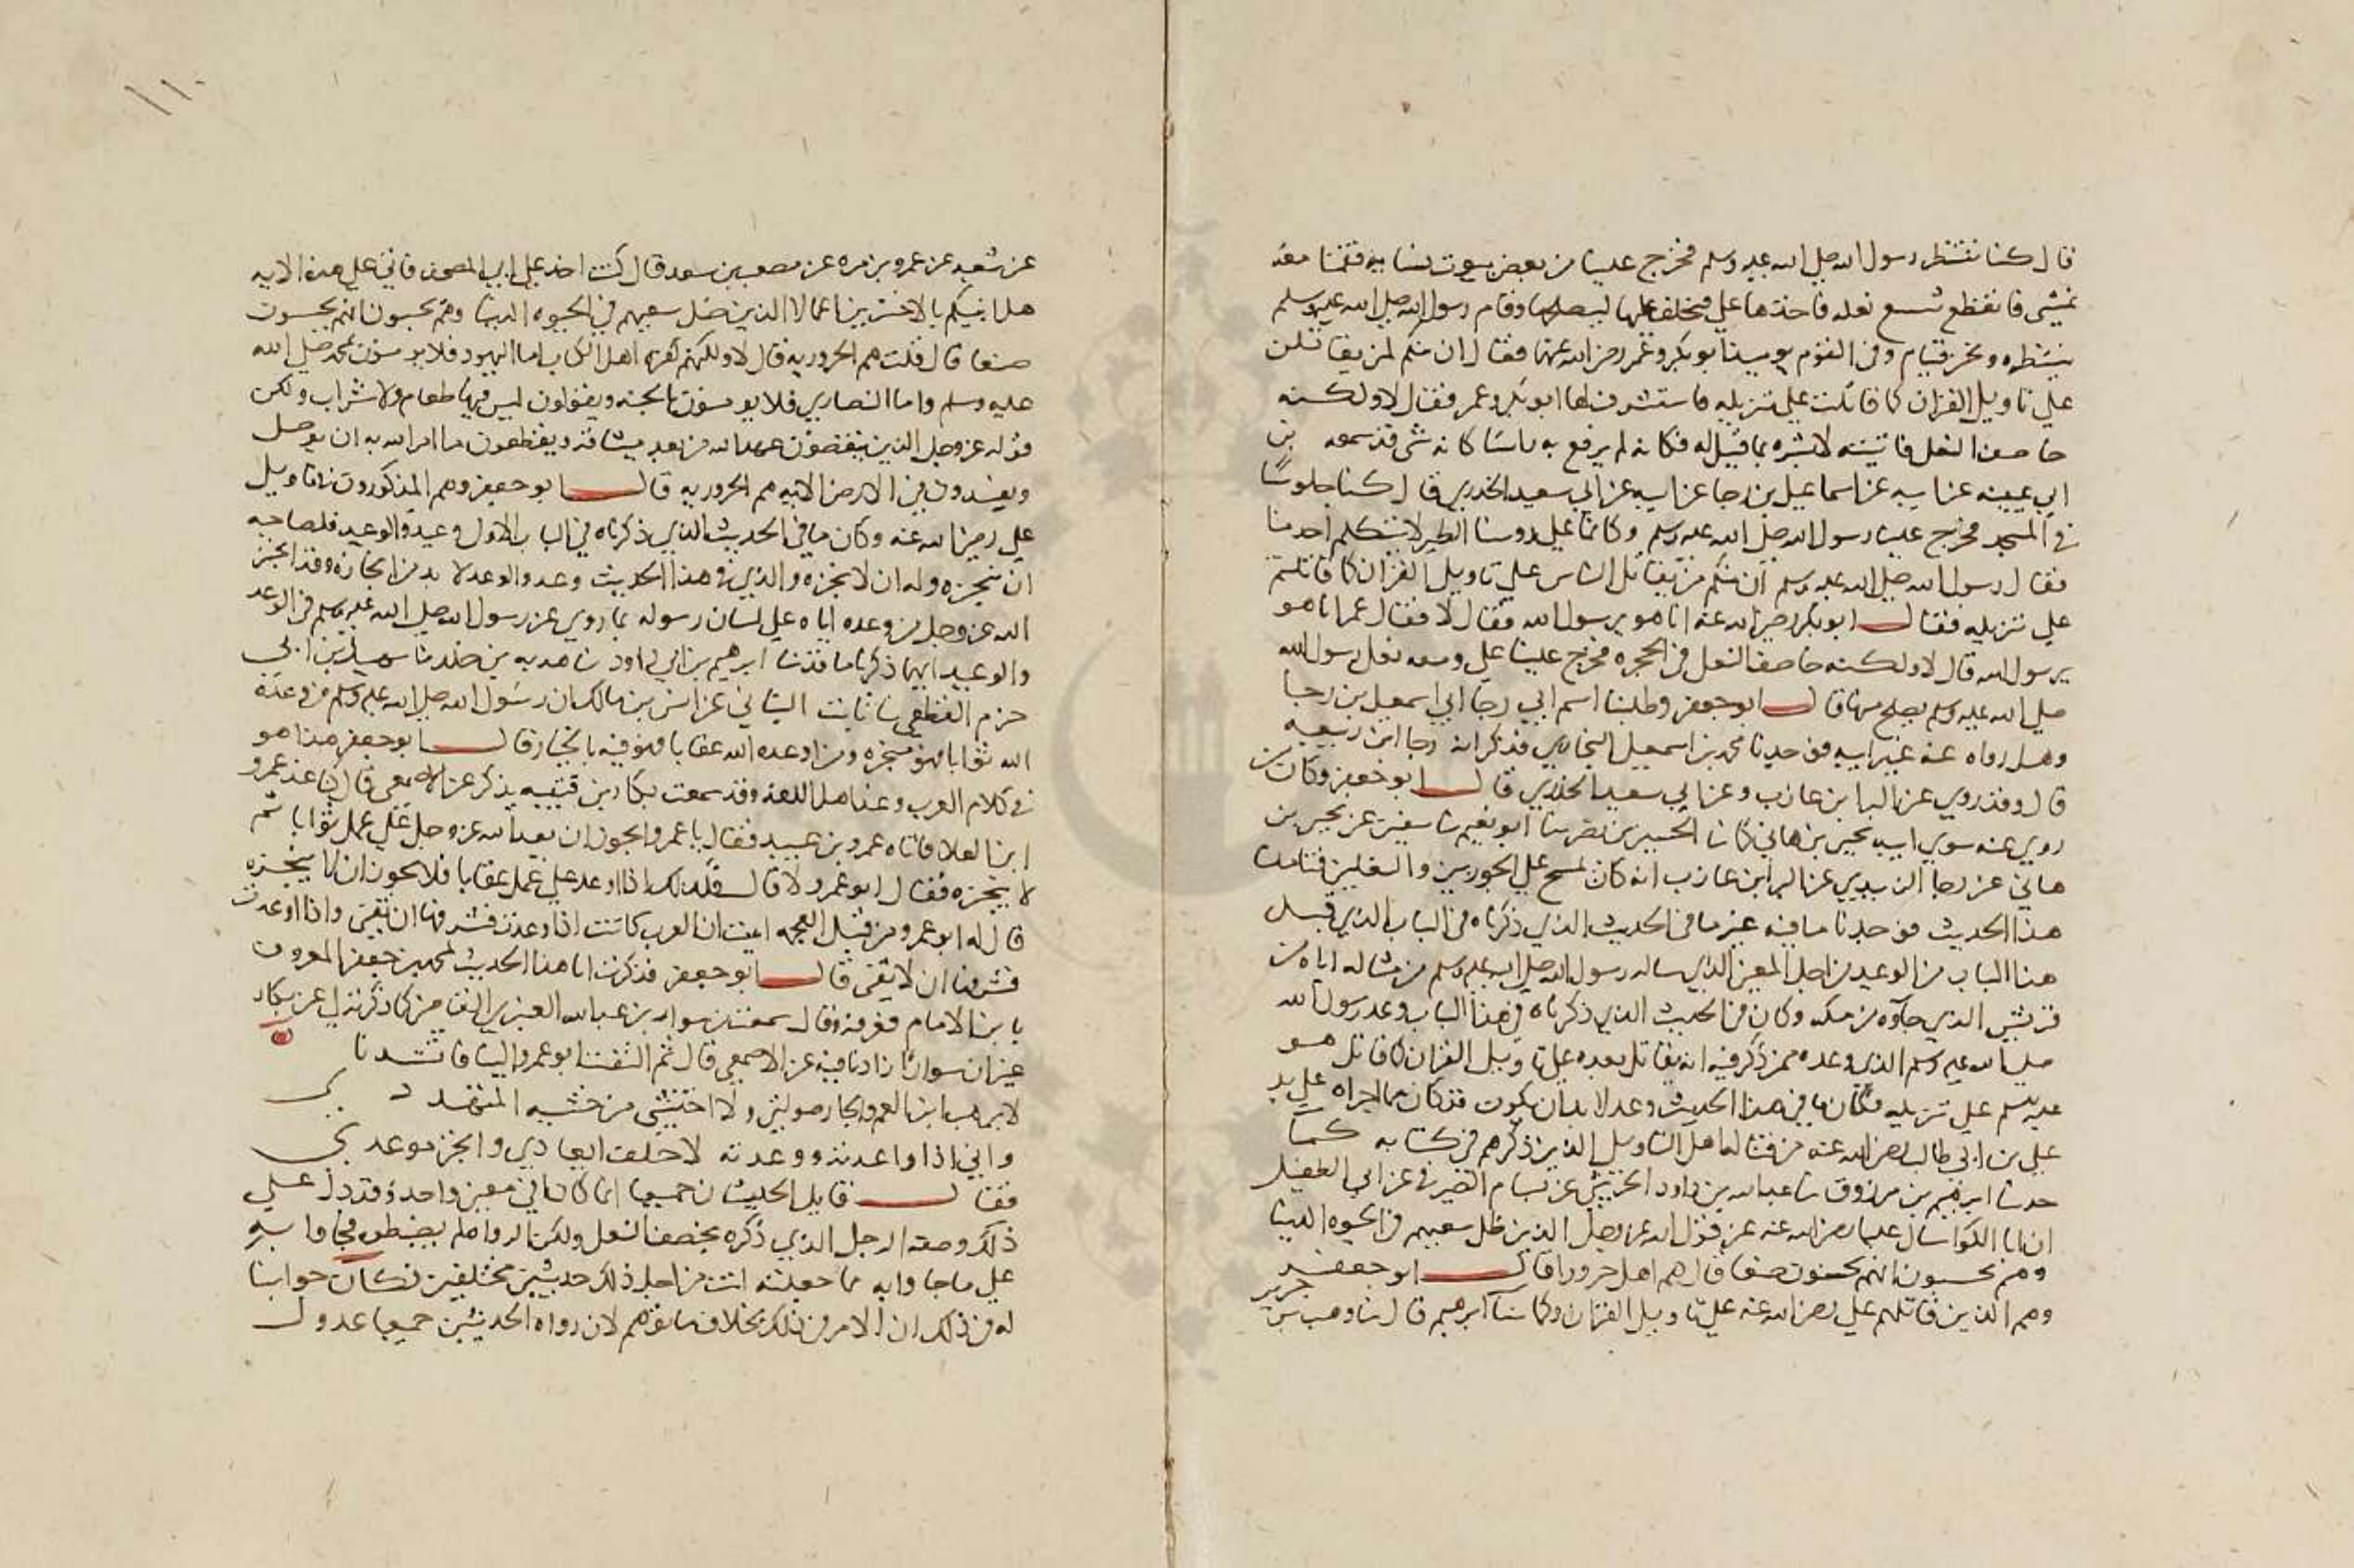 قال كنا ننتظر رسول الله صلى الله عليه وسلم فخرج علينا من بعض بيوت نسايه فقمنا معه
نمشي فانقطع شسع نعله فاخذها علي فتخلف عليها ليصلحها وقام رسول الله صلى الله عليه وسلم
ننتظره ونحن قيام وفي القوم يوميذ ابو بكر وعمر رضي الله عنهما فقال ان منكم لمن يقاتلن
علي تاويل القران كما قاتلت علي تنزيله فاستشرف لها ابو بكر وعمر فقال لا ولكنه
خاصف النعل فاتيته لابشره بما قيل له فكانه لم يرفع به راسا كانه شي قد سمعه
ابي عيينه عن ابيه عن اسماعيل بن رجا عن ابيه عن ابي سعيد الخدري قال كنا جلوسًا
في المسجد فخرج علينا رسول الله صلى الله عليه وسلم وكانما علي روسنا الطير لا يتكلم احد منا
فقال رسول الله صلى الله عليه وسلم ان منكم من يقاتل الناس علي تاويل القران كما قاتلتم
علي تنزيله فقال ابو بكر رضي الله عنه انا هو يرسول الله فقال لا فقال عمر انا هو
يرسول الله قال لا ولكنه خاصف النعل في الحجره فخرج علينا علي ومعه نعل رسول الله
صلى الله عليه وسلم يصلح منها قال ابو جعفر وطلبنا اسم ابي رجا ابي اسمعيل بن رجا
وهل رواه عنه غير ابيه فوجدنا محمد بن اسمعيل البخاري قد ذكر انه رجا ابن ربيعه
قال وقد روي عن البرا بن عازب وعن ابي سعيد الخدري قال ابو جعفر وكان من
روي عنه سوي ابنه يحيى بن هاني كما نا الحسين بن نصر نا ابو نعيم نا سفين عن يحيى بن
هاني عن رجا الزبيدي عن البرا بن عازب انه كان يمسح علي الجوربين والنعلين فتاملنا
هذا الحديث فوجدنا ما فيه غير ما في الحديث الذي ذكرناه في الباب الذي قبل
هذا الباب من الوعيد من اجل المعنى الذي ساله رسول الله صلى الله عليه وسلم من مثاله اياه من
قريش الذي جآوه من مكه وكان في الحديث الذي ذكرناه في هذا الباب وعد رسول الله
صلى الله عليه وسلم الذي وعده ممن ذكر فيه انه يقاتل بعده علي تاويل القران كما قاتل هو
عليه السلم علي تنزيله فكان ما في هذا الحديث وعد لا بد ان يكون فقد كان مما اجراه علي يد
علي بن ابي طالب رضي الله عنه من قتاله اهل التاويل الذين ذكرهم في كتابه كما
حدثنا ابرهيم بن مرزوق نا عبد الله بن داود الخريبي عن بسام الصيرفي عن ابي الطفيل
ان ابن الكوا سال عليا رضي الله عنه عن قول الله عز وجل الذين ضل سعيهم في الحيوه الدنيا
وهم يحسبون انهم يحسنون صنعا قال هم اهل حرورا قال ابو جعفر
وهم الذين قاتلهم علي رضي الله عنه علي تاويل القران وكما نا ابرهيم قال نا وهب بن جرير
١١٠
عن شعبه عن عمرو بن مره عن مصعب بن سعد قال كنت اخذ علي ابي المصحف فاتي علي هذه الايه
هل انبيكم بالاخسرين اعمالا الذين ضل سعيهم في الحيوه الدنيا وهم يحسبون انهم يحسنون
صنعا قال قلت هم الحروريه قال لا ولكنهم كفره اهل الكتاب اما اليهود فلا يومنون بمحمد صلى الله
عليه وسلم واما النصاري فلا يومنون بالجنه ويقولون ليس فيها طعام ولا شراب ولكن
قوله عز وجل الذين ينقضون عهد الله من بعد ميثاقه ويقطعون ما امر الله به ان يوصل
ويفسدون في الارض الايه هم الحروريه قال ابو جعفر وهم المذكورون بتاويل
علي رضي الله عنه وكان ما في الحديث الذي ذكرناه في الباب الاول وعيد والوعيد فلصاحبه
ان ينجزه وله ان لا ينجزه والذي في هذا الحديث وعد والوعد لا بد من انجازه وقد انجز
الله عز وجل من وعده اياه علي لسان رسوله بما روي عن رسول الله صلى الله عليه وسلم في الوعد
والوعيد ايهما ذكرنا ما قد نا ابرهيم بن ابي داود نا هدبه بن خلد نا سهيل بن ابي
حزم القطعي نا ثابت البناني عن انس بن مالك ان رسول الله صلى الله عليه وسلم من وعده
الله ثوابا فهو منجزه ومن اوعده الله عقابا فهو فيه بالخيار قال ابو جعفر هذا هو
في كلام العرب وعند اهل اللغه وقد سمعت بكار بن قتيبه يذكر عن الاصمعي قال كنا عند عمرو
ابن العلا فاتاه عمرو بن عبيد فقال يا ابا عمرو ايجوز ان يعد الله عز وجل علي عمل ثوابا ثم
لا ينجزه فقال ابو عمرو لا قال فكذلك اذا اوعد علي عمل عقابا فلا يجوز ان لا ينجزه
قال له ابو عمرو من قبل العجمه اتيت ان العرب كانت اذا وعدت فشرفها ان تفي واذا اوعدت
فشرفها ان لا تفي قال ابو جعفر فذكرت انا هذا الحديث لمحمد بن جعفر المعروف
يا بن الامام فعرفه وقال سمعته من سوار بن عبد الله العنبري القاضي كما ذكرته لي عن بكار
غير ان سوارا زادنا فيه عن الاصمعي قال ثم التفت ابو عمرو الينا فانشدنا
لا يرهب ابن العم والجار صولتي ولا اختشي من خشيه المتهدد
واني اذا واعدته ووعدته لاخلف ايعادي وانجز موعدي
فقال قايل الحديثان جميعا انما كانا في معنى واحد وقد دل علي
ذلك وصفه الرجل الذي ذكره بخصف النعل ولكن الرواه لم يضبطوه فجاوا به
علي ما جاوا به مما جعلته انت من اجل ذلك حديثين مختلفين فكان جوابنا
له في ذلك ان الامر في ذلك بخلاف ما توهم لان رواه الحديثين جميعا عدول